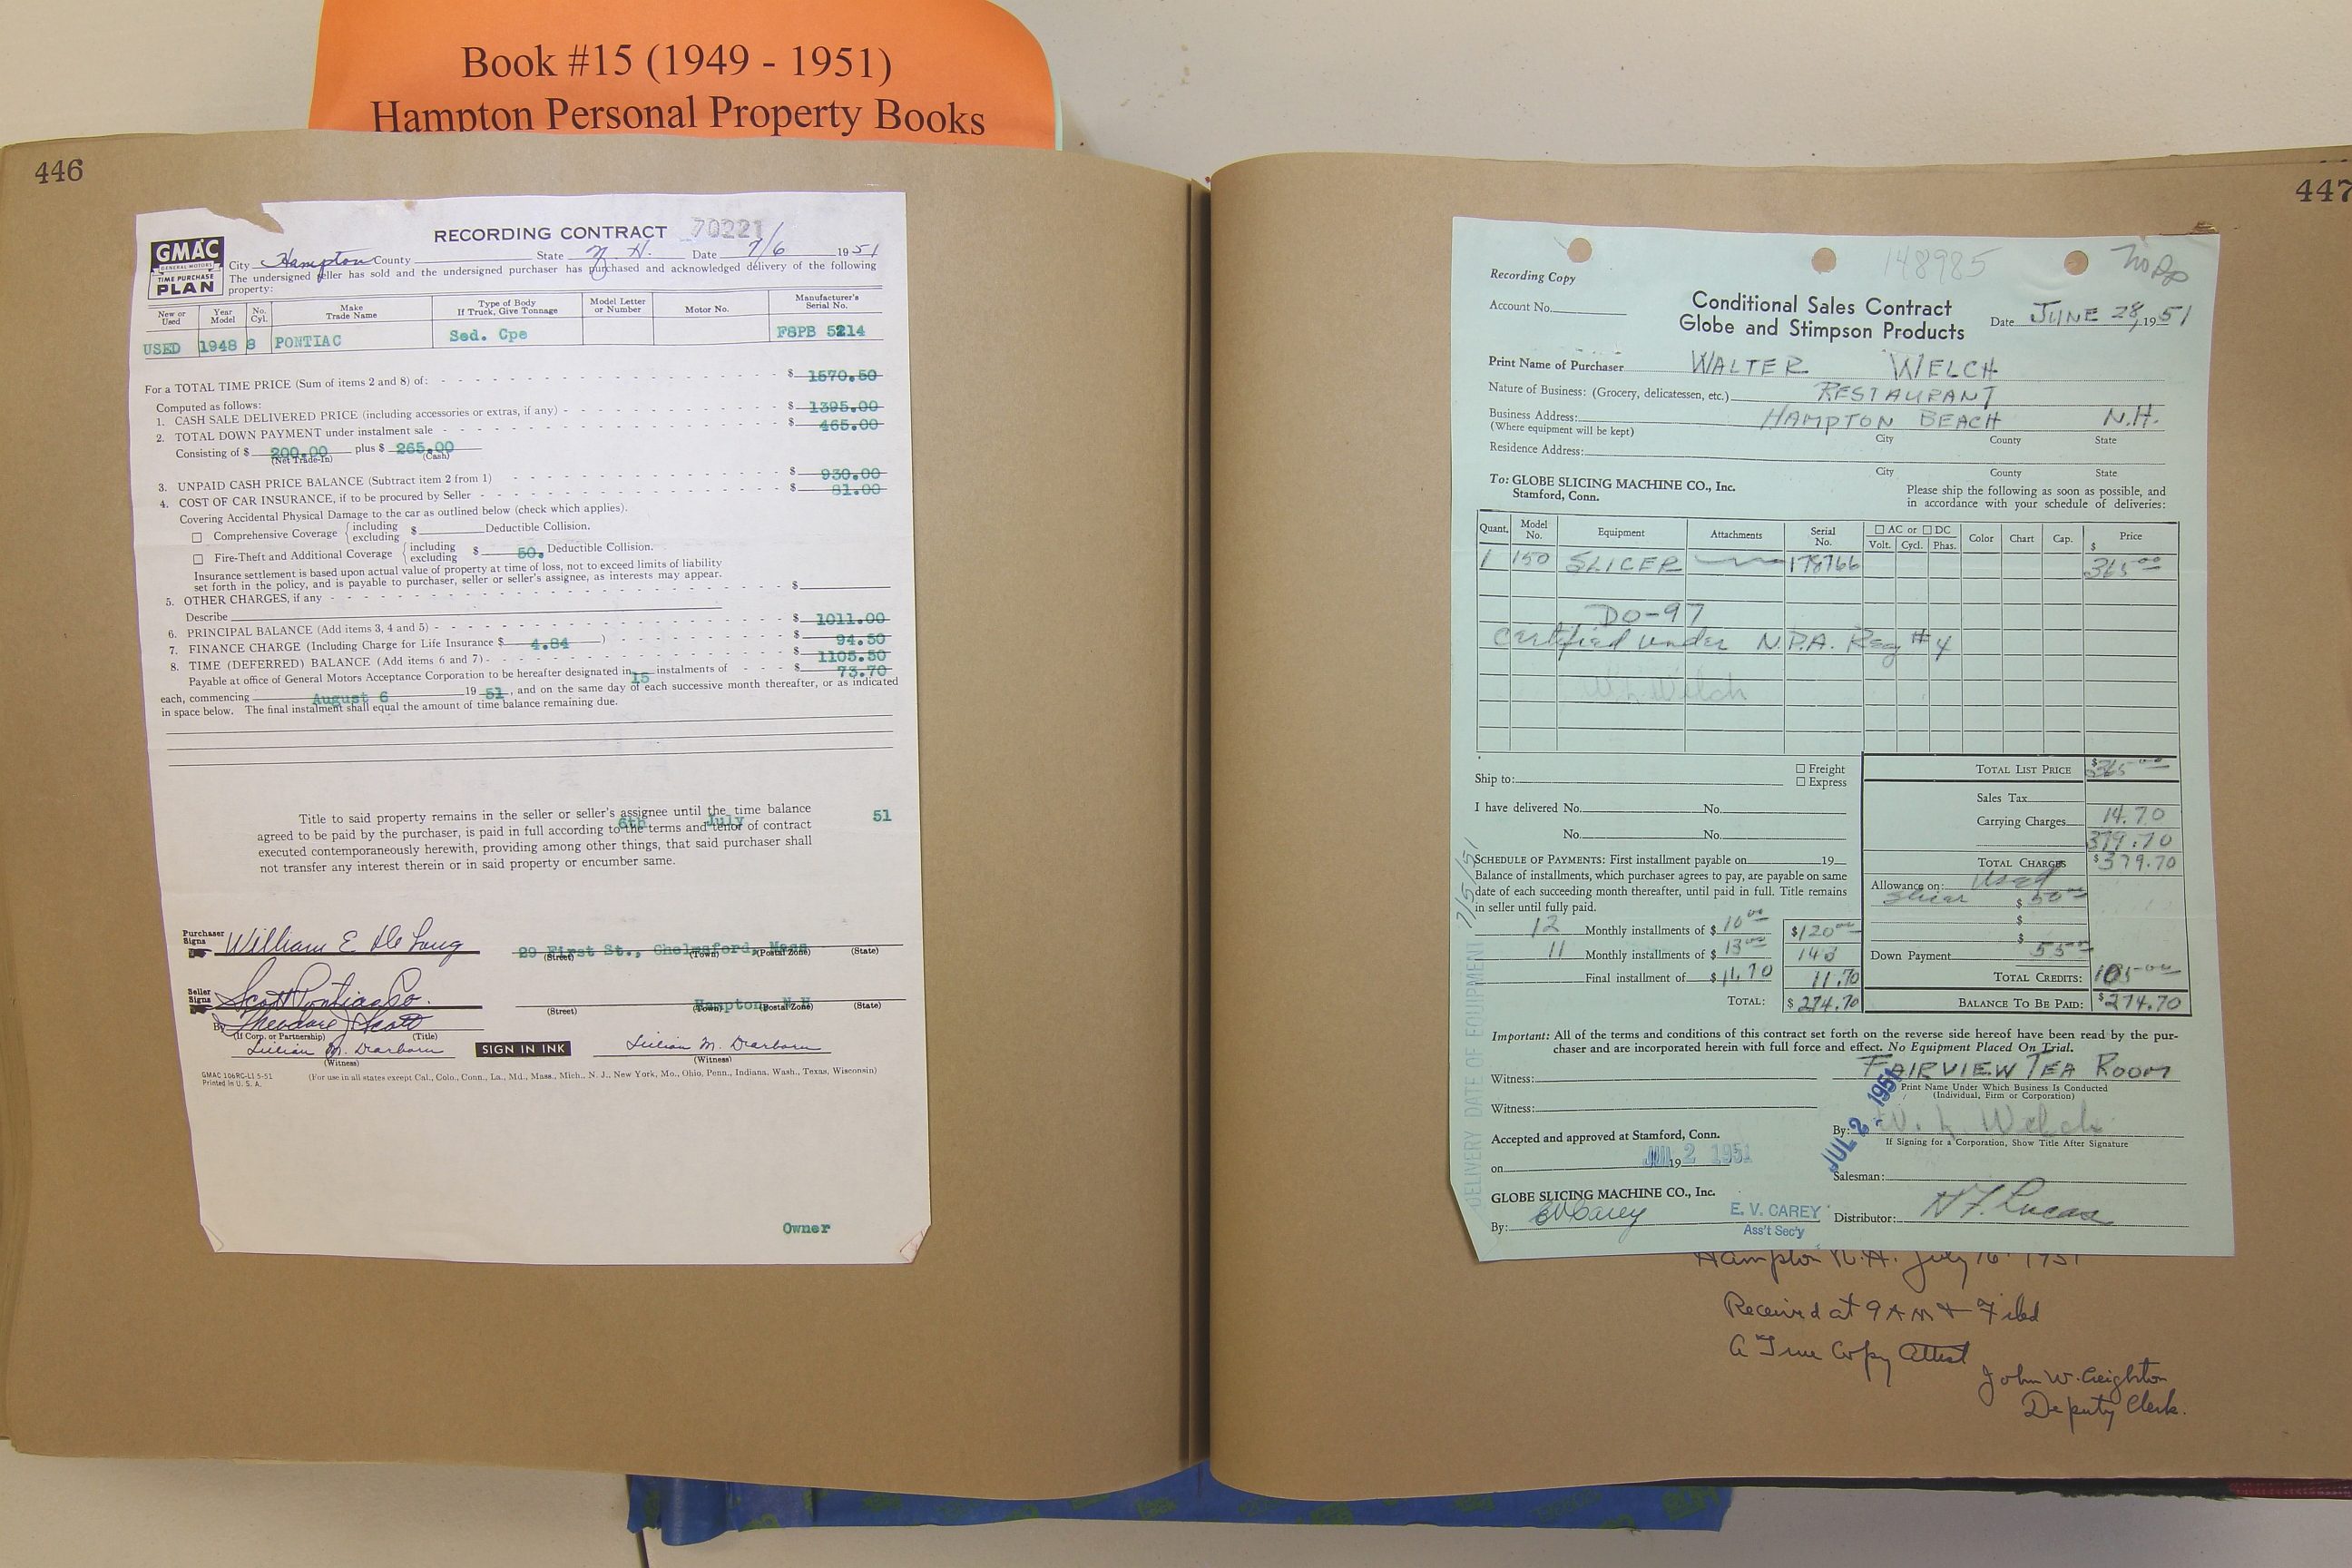 Book #15 (1949 - 1951)
Hampton Personal Property Books
446
GMAC
GENERAL MOTORS
TIME PURCHASE
PLAN
RECORDING CONTRACT 70221
City Hampton County State N. H. Date 7/6 1951
The undersigned seller has sold and the undersigned purchaser has purchased and acknowledged delivery of the following
property:
New or Used Year Model No. Cyl. Make Trade Name Type of Body If Truck, Give Tonnage Model Letter or Number Motor No. Manufacturer's Serial No.
USED 1948 8 PONTIAC Sed. Cpe F8PB 5214
For a TOTAL TIME PRICE (Sum of items 2 and 8) of: $ 1570.50
Computed as follows:
1. CASH SALE DELIVERED PRICE (including accessories or extras, if any) $ 1395.00
2. TOTAL DOWN PAYMENT under instalment sale $ 465.00
Consisting of $ 200.00 plus $ 265.00
(Net Trade-In) (Cash)
3. UNPAID CASH PRICE BALANCE (Subtract item 2 from 1) $ 930.00
4. COST OF CAR INSURANCE, if to be procured by Seller $ 81.00
Covering Accidental Physical Damage to the car as outlined below (check which applies).
Comprehensive Coverage {including excluding $ Deductible Collision.
Fire-Theft and Additional Coverage {including excluding $ 50. Deductible Collision.
Insurance settlement is based upon actual value of property at time of loss, not to exceed limits of liability
set forth in the policy, and is payable to purchaser, seller or seller's assignee, as interests may appear.
5. OTHER CHARGES, if any $
Describe
6. PRINCIPAL BALANCE (Add items 3, 4 and 5) $ 1011.00
7. FINANCE CHARGE (Including Charge for Life Insurance $ 4.84 ) $ 94.50
8. TIME (DEFERRED) BALANCE (Add items 6 and 7) $ 1105.50
Payable at office of General Motors Acceptance Corporation to be hereafter designated in 15 instalments of $ 73.70
each, commencing August 6 1951, and on the same day of each successive month thereafter, or as indicated
in space below. The final instalment shall equal the amount of time balance remaining due.
Title to said property remains in the seller or seller's assignee until the time balance
6th July 51
agreed to be paid by the purchaser, is paid in full according to the terms and tenor of contract
executed contemporaneously herewith, providing among other things, that said purchaser shall
not transfer any interest therein or in said property or encumber same.
Purchaser Signs William E De Long 29 First St., Chelmsford, Mass
(Street) (Town) (Postal Zone) (State)
Seller Signs Scott Pontiac Co. Hampton, N.H
(Street) (Town) (Postal Zone) (State)
By Theodore J Scott
(If Corp. or Partnership) (Title)
Lillian M. Dearborn SIGN IN INK Lillian M. Dearborn
(Witness) (Witness)
GMAC 106RC-LI 5-51
Printed in U. S. A.
(For use in all states except Cal., Colo., Conn., La., Md., Mass., Mich., N. J., New York, Mo., Ohio, Penn., Indiana, Wash., Texas, Wisconsin)
Owner
447
148985
Recording Copy
Account No.
Conditional Sales Contract
Globe and Stimpson Products
Date JUNE 28, 1951
Print Name of Purchaser WALTER WELCH
Nature of Business: (Grocery, delicatessen, etc.) RESTAURANT
Business Address: HAMPTON BEACH N.H.
(Where equipment will be kept) City County State
Residence Address:
City County State
To: GLOBE SLICING MACHINE CO., Inc.
Stamford, Conn.
Please ship the following as soon as possible, and
in accordance with your schedule of deliveries:
Quant. Model No. Equipment Attachments Serial No. AC or DC Volt. Cycl. Phas. Color Chart Cap. Price $
1 150 SLICER 178766 365.00
DO-97
Certified under N.P.A. Reg #4
W. L. Welch
Ship to: Freight
Express
I have delivered No. No.
No. No.
SCHEDULE OF PAYMENTS: First installment payable on 19
Balance of installments, which purchaser agrees to pay, are payable on same
date of each succeeding month thereafter, until paid in full. Title remains
in seller until fully paid.
12 Monthly installments of $ 10.00 $120.00
11 Monthly installments of $ 13.00 143
Final installment of $ 11.70 11.70
TOTAL: $274.70
TOTAL LIST PRICE $365.00
Sales Tax
Carrying Charges 14.70
379.70
TOTAL CHARGES $379.70
Allowance on: Used
Slicer $ 50.00
$
$
Down Payment 55.00
TOTAL CREDITS: 105.00
BALANCE TO BE PAID: $274.70
DELIVERY DATE OF EQUIPMENT 7/5/51
Important: All of the terms and conditions of this contract set forth on the reverse side hereof have been read by the pur-
chaser and are incorporated herein with full force and effect. No Equipment Placed On Trial.
Witness: FAIRVIEW TEA ROOM
Print Name Under Which Business Is Conducted
(Individual, Firm or Corporation)
Witness:
JUL 2 - 1951
By: W. L. Welch
If Signing for a Corporation, Show Title After Signature
Accepted and approved at Stamford, Conn.
on JUL 2 1951 19
Salesman:
GLOBE SLICING MACHINE CO., Inc.
By: EV Carey E. V. CAREY
Ass't Sec'y
Distributor: H F. Lucas
Hampton N.H. July 16 1951
Received at 9 AM & Filed
A True Copy Attest
John W. Creighton
Deputy Clerk.